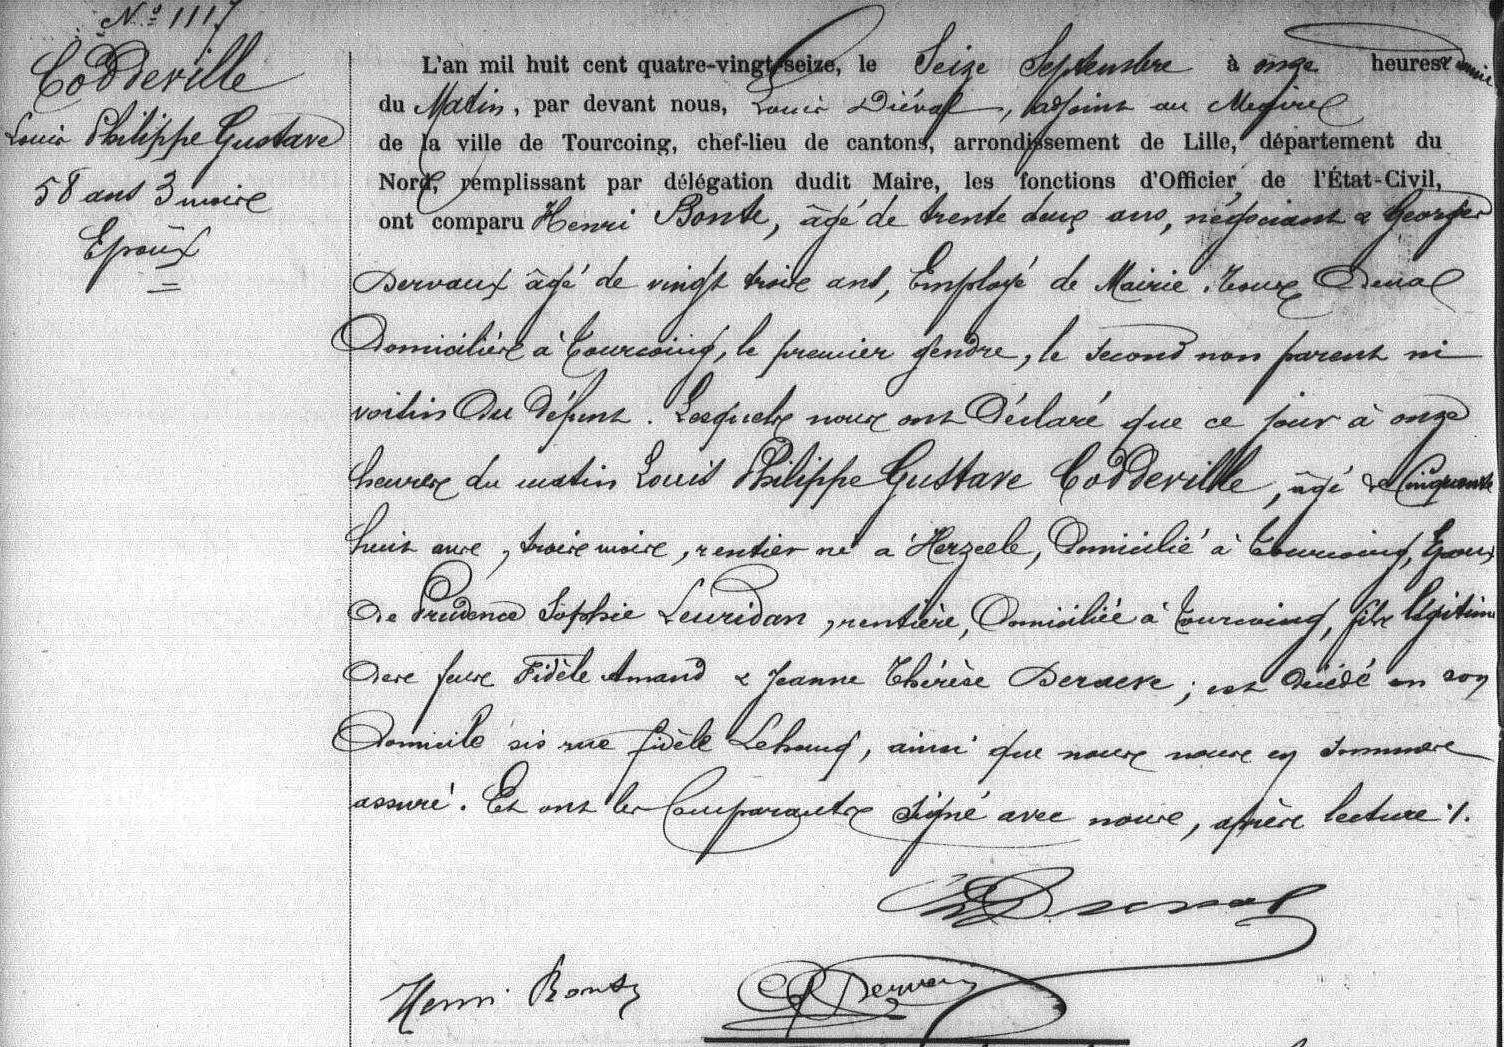 N° 1117
Coddeville
Louis Philippe Gustave
58 ans 3 mois
Epoux
L'an mil huit cent quatre-vingt-seize, le Seize Septembre à onze heures & demie
du Matin, par devant nous, Louis Diéval, adjoint au Maire
de la ville de Tourcoing, chef-lieu de cantons, arrondissement de Lille, département du
Nord, remplissant par délégation dudit Maire, les fonctions d'Officier de l'État-Civil,
ont comparu Henri Bonte, âgé de trente deux ans, négociant & Georges
Dervaux âgé de vingt trois ans, Employé de Mairie, tous deux
Domiciliés à Tourcoing, le premier gendre, le second non parent ni
voisin du défunt. Lesquels nous ont Déclaré que ce jour à onze
heures du matin Louis Philippe Gustave Coddeville, âgé de Cinquante
huit ans, trois mois, rentier né à Herzeele, Domicilié à Tourcoing, Epoux
de Prudence Sophie Leuridan, rentière, Domiciliée à Tourcoing, fils légitime
des feus Fidèle Amand & Jeanne Thérèse Deraeve; est décédé en son
Domicile sis rue fidèle Lehoucq, ainsi que nous nous en sommes
assuré. Et ont les Comparants signé avec nous, après lecture ./.
Henri Bonte
Dervaux